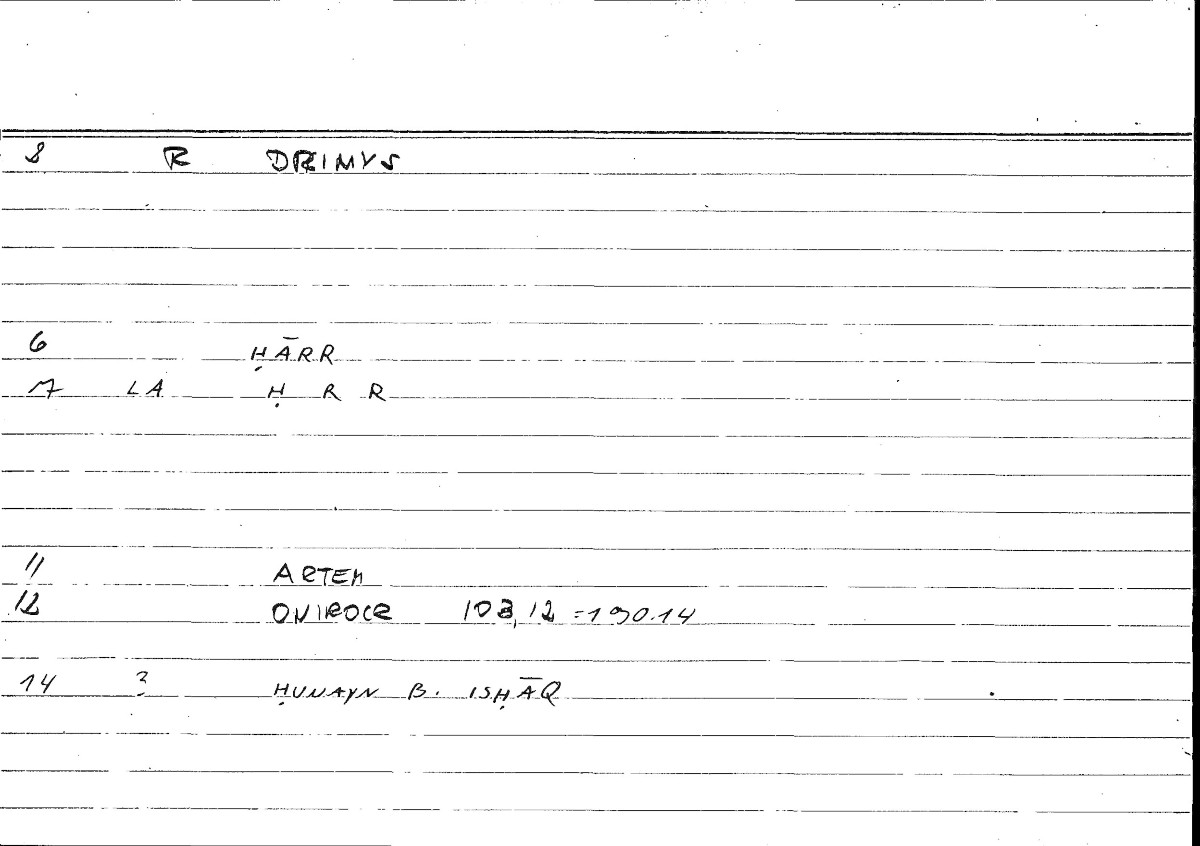 8 R DRIMYS
6 ḤĀRR
7 LA Ḥ R R
11 ARTEM
12 ONIROCR 103,12 =190.14
14 ? ḤUNAYN B. ISḤĀQ